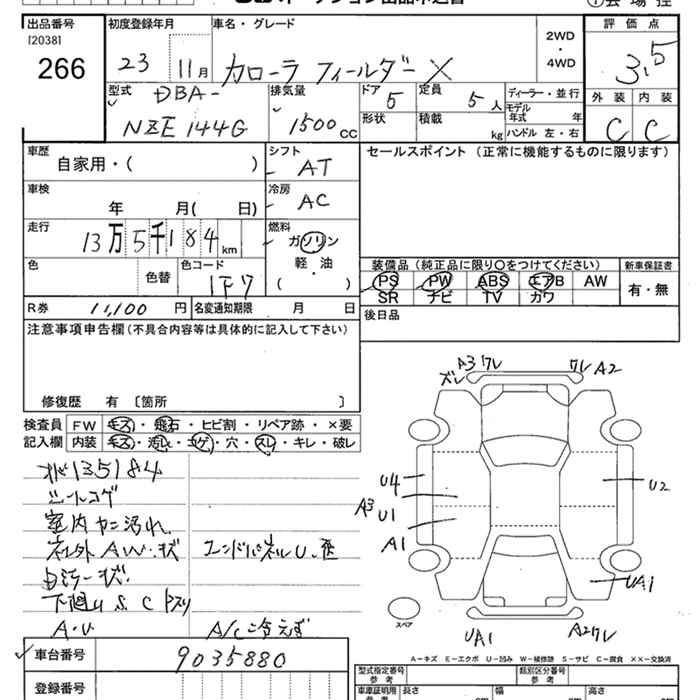 出品番号
120381
266
初度登録年月
23 11月
車名・グレード
カローラ フィールダー X
2WD
・
4WD
評価点
3.5
外装 内装
C C
型式
DBA-
NZE144G
排気量
1500 cc
ドア
5
定員
5人
ディーラー・並行
モデル
年式 年
形状
積載
kg
ハンドル 左・右
車歴
自家用・( )
シフト
AT
セールスポイント (正常に機能するものに限ります)
車検
年 月( 日)
冷房
AC
走行
13万5千184km
燃料
ガソリン
軽・油
( )
色
色替
色コード
1F7
装備品 (純正品に限り○をつけてください)
PS PW ABS エアB AW
SR ナビ TV カワ
新車保証書
有・無
R券 11,100 円
名変通知期限 月 日
後日品
注意事項申告欄(不具合内容等は具体的に記入して下さい)
修復歴 有 〔箇所 〕
検査員
記入欄
FW キズ・飛石・ヒビ割・リペア跡・×要
内装 キズ・汚れ・コゲ・穴・スレ・キレ・破レ
135184
シートコゲ
室内 汚れ
社外AW・状
エンドパネルU・歪
下廻りS.C
A・U
A/C冷えず
A3 ワレ
ズレ
ワレ A2
U4
A3
U1
A1
U2
UA1
UA1
A2ワレ
スペア
A-キズ E-エクボ U-凹み W-補修跡 S-サビ C-腐食 ××-交換済
車台番号
9035880
登録番号
型式指定番号
参考
類別区分番号
参考
車庫証明用
参考
長さ
幅
高さ